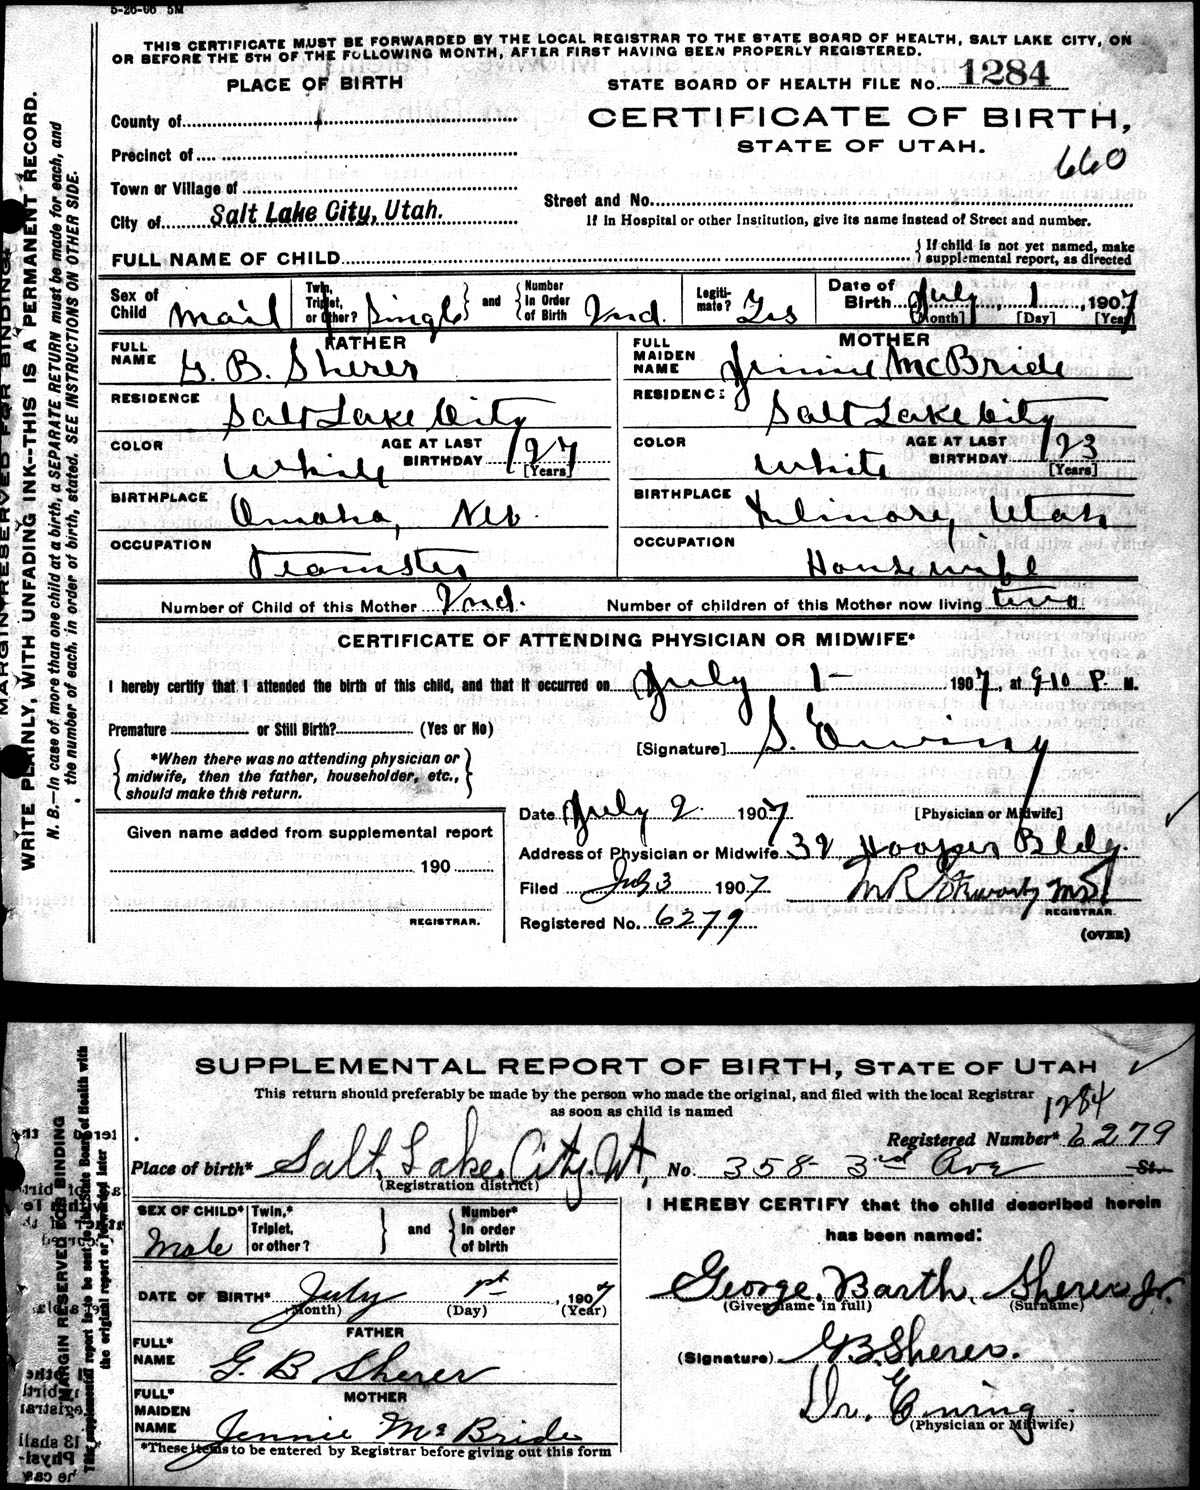 5-26-06 5M
THIS CERTIFICATE MUST BE FORWARDED BY THE LOCAL REGISTRAR TO THE STATE BOARD OF HEALTH, SALT LAKE CITY, ON
OR BEFORE THE 5TH OF THE FOLLOWING MONTH, AFTER FIRST HAVING BEEN PROPERLY REGISTERED.
PLACE OF BIRTH
STATE BOARD OF HEALTH FILE No. 1284
County of
CERTIFICATE OF BIRTH,
Precinct of
STATE OF UTAH.
660
Town or Village of
Street and No.
City of Salt Lake City, Utah.
If in Hospital or other Institution, give its name instead of Street and number.
FULL NAME OF CHILD
{ If child is not yet named, make supplemental report, as directed
Sex of Child Mail Twin, Triplet, or Other? Single } and { Number in Order of Birth 2nd. Legitimate? Yes Date of Birth July 1, 1907
[Month] [Day] [Year]
FATHER
MOTHER
FULL NAME G. B. Sherer
FULL MAIDEN NAME Jinnie McBride
RESIDENCE Salt Lake City
RESIDENCE Salt Lake City
COLOR White AGE AT LAST BIRTHDAY 27 [Years]
COLOR White AGE AT LAST BIRTHDAY 23 [Years]
BIRTHPLACE Omaha, Neb.
BIRTHPLACE Utah
OCCUPATION Teamster
OCCUPATION Housewife
Number of Child of this Mother 2nd. Number of children of this Mother now living two
CERTIFICATE OF ATTENDING PHYSICIAN OR MIDWIFE*
I hereby certify that I attended the birth of this child, and that it occurred on July 1- 1907, at 9-10 P. M.
Premature or Still Birth? (Yes or No)
[Signature] S. Ewing
{ *When there was no attending physician or midwife, then the father, householder, etc., should make this return. }
[Physician or Midwife]
Date July 2 1907
Given name added from supplemental report
Address of Physician or Midwife 32 Hooper Bldg.
190
Filed July 3 1907
REGISTRAR.
REGISTRAR.
Registered No. 6279
(OVER)
MARGIN RESERVED FOR BINDING.
WRITE PLAINLY, WITH UNFADING INK--THIS IS A PERMANENT RECORD.
N. B.—In case of more than one child at a birth, a SEPARATE RETURN must be made for each, and
the number of each, in order of birth, stated. SEE INSTRUCTIONS ON OTHER SIDE.
SUPPLEMENTAL REPORT OF BIRTH, STATE OF UTAH
This return should preferably be made by the person who made the original, and filed with the local Registrar
as soon as child is named
1284
Registered Number* 6279
Place of birth* Salt Lake City, Ut, No. 358- 3rd Ave St.
(Registration district)
I HEREBY CERTIFY that the child described herein
has been named:
SEX OF CHILD* Male Twin,* Triplet, or other? } and { Number* in order of birth
George Barth Sherer Jr.
(Given name in full) (Surname)
DATE OF BIRTH* July 1st, 1907
(Month) (Day) (Year)
FATHER
FULL* NAME G. B Sherer
(Signature) G.B. Sherer.
MOTHER
FULL* MAIDEN NAME Jennie McBride
Dr. Ewing
(Physician or Midwife)
*These items to be entered by Registrar before giving out this form
MARGIN RESERVED FOR BINDING
This supplemental report is to be sent to State Board of Health with
the original report or forwarded later